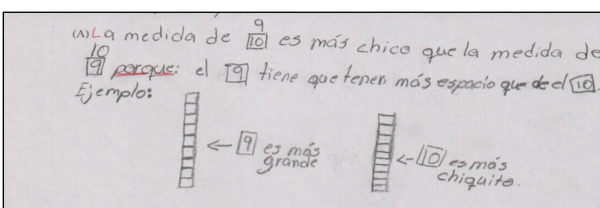 (A) La medida de 9/10 es más chico que la medida de
10/9 porque: el 9 tiene que tener más espacio que de el 10.
Ejemplo:
← 9 es más
grande
← 10 es más
chiquito.